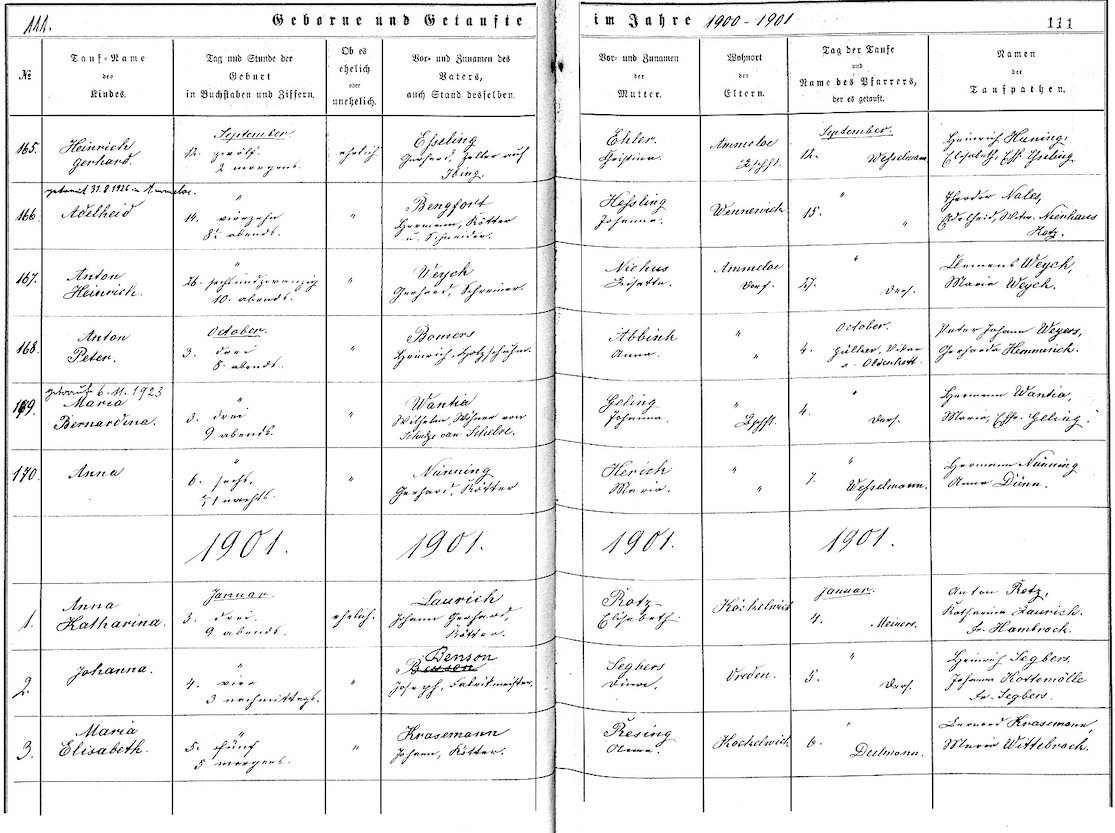 111.
Geborne und Getaufte
im Jahre 1900-1901
111
№
Tauf-Name
des
Kindes.
Tag und Stunde der
Geburt
in Buchstaben und Ziffern.
Ob es
ehelich
oder
unehelich.
Vor- und Zunamen des
Vaters,
auch Stand desselben.
Vor- und Zunamen
der
Mutter.
Wohnort
der
Eltern.
Tag der Taufe
und
Name des Pfarrers,
der es getauft.
Namen
der
Taufpathen.
165.
Heinrich
Gerhard
September.
12. zwölf.
2 morgens.
ehelich
Esseling
Gerhard, Zeller auf
Ehler.
Christina.
Ammeloe
September.
12. Wesselmann
Heinrich Huning,
getraut 31.8.1926 in Ammeloe.
166.
Adelheid
"
14. vierzehn
8½ abends.
"
Bengfort
Hermann, Kötter
u. Schneider.
Hessling
Johanna.
Wennewick
"
15. "
Theodor Nales,
Adelheid, Nienhaus
167.
Anton
Heinrich.
"
26. sechsundzwanzig
10. abends.
"
Weyck
Gerhard, Schreiner.
Niehus
Lisetta.
Ammeloe
Dorf.
"
27. Ders.
Clemens Weyck,
Maria Weyck.
168.
Anton
Peter.
October.
3. drei
8. abends.
"
Bomers
Heinrich, Holzschuhm.
Abbink
Anna.
"
"
October.
4. Vikar
Peter Johann Weyers,
Gerharda Hemmink.
6. 11. 1923
169.
Maria
Bernardina.
"
3. drei
9 abends.
"
Wantia
Wilhelm,
Geling
Johanna
"
"
4. Ders.
Hermann Wantia,
Maria, Geling.
170.
Anna
"
6. sechs.
½1 nachts.
"
Nünning
Gerhard, Kötter
Herick
Maria.
"
"
"
7. Wesselmann.
Hermann Nünning
Anna Dünn.
1901.
1901.
1901.
1901.
1.
Anna
Katharina.
Januar.
3. drei.
9 abends.
ehelich.
Laurick
Johann Gerhard,
Kötter.
Rotz
Elisabeth.
Köckelwick
Januar.
4. Meiners.
Anton Rotz,
Katharina Laurick.
Fr. Hambrock.
2.
Johanna.
"
4. vier
3 nachmittags.
"
Benson
Joseph, Fabrikmeister.
Segbers
Dina.
Vreden.
"
5. Ders.
Heinrich Segbers.
Johanna Kottemölle
Fr. Segbers.
3.
Maria
Elisabeth.
"
5. fünf
5 morgens.
"
Krasemann
Johann, Kötter.
Resing
Anna.
Kockelwick
"
6. Deelmann.
Bernard Krasemann,
Maria Wittebrock.